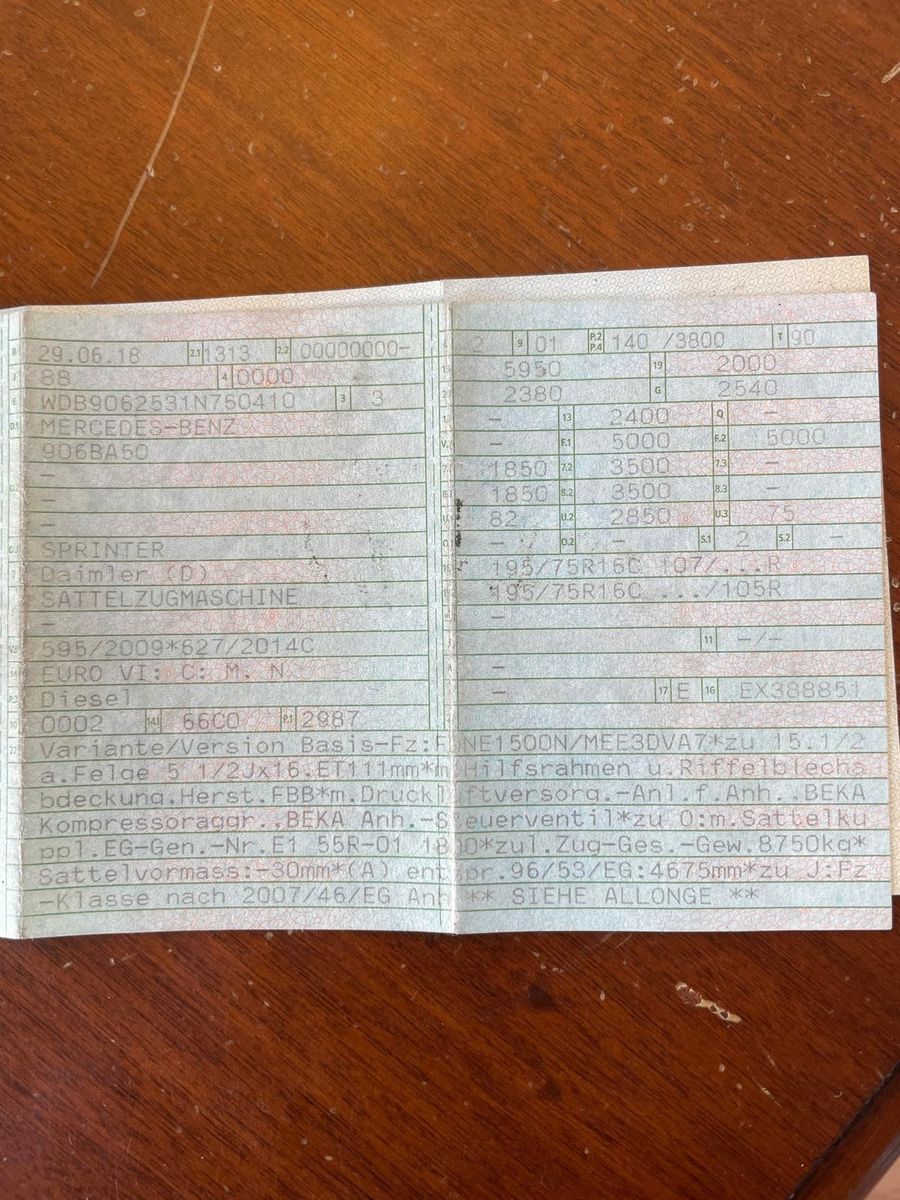 B 29.06.18 2.1 1313 2.2 00000000-
J 88 4 0000
E WDB9062531N760410 3 3
D.1 MERCEDES-BENZ
906BA50
-
-
-
D.3 SPRINTER
2 Daimler (D)
5 SATTELZUGMASCHINE
-
V.9 595/2009*627/2014C
14 EURO VI; C; M, N
P.3 Diesel
10 0002 14.1 66C0 P.1 2987
L 2 9 01 P.2 P.4 140 /3800 T 90
18 5950 19 2000
20 2380 G 2540
12 - 13 2400 Q -
V.7 - F.1 5000 F.2 5000
7.1 1850 7.2 3500 7.3 -
8.1 1850 8.2 3500 8.3 -
U.1 82 U.2 2850 U.3 75
O.1 - O.2 - S.1 2 S.2 -
15.1 195/75R16C 107/...R
15.2 195/75R16C .../105R
-
11 -/-
-
- 17 E 16 EX388851
22 Variante/Version Basis-Fz: NE1500N/MEE3DVA7*zu 15.1/2
a.Felge 5 1/2Jx16,ET111mm*m Hilfsrahmen u.Riffelblecha
bdeckung,Herst.FBB*m.Druckl ftversorg.-Anl.f.Anh.,BEKA
Kompressoraggr.,BEKA Anh.-Steuerventil*zu O:m.Sattelku
ppl.EG-Gen.-Nr.E1 55R-01 1800*zul.Zug-Ges.-Gew.8750kg*
Sattelvormass:-30mm*(A) ent pr.96/53/EG:4675mm*zu J:Fz
-Klasse nach 2007/46/EG Anh ** SIEHE ALLONGE **